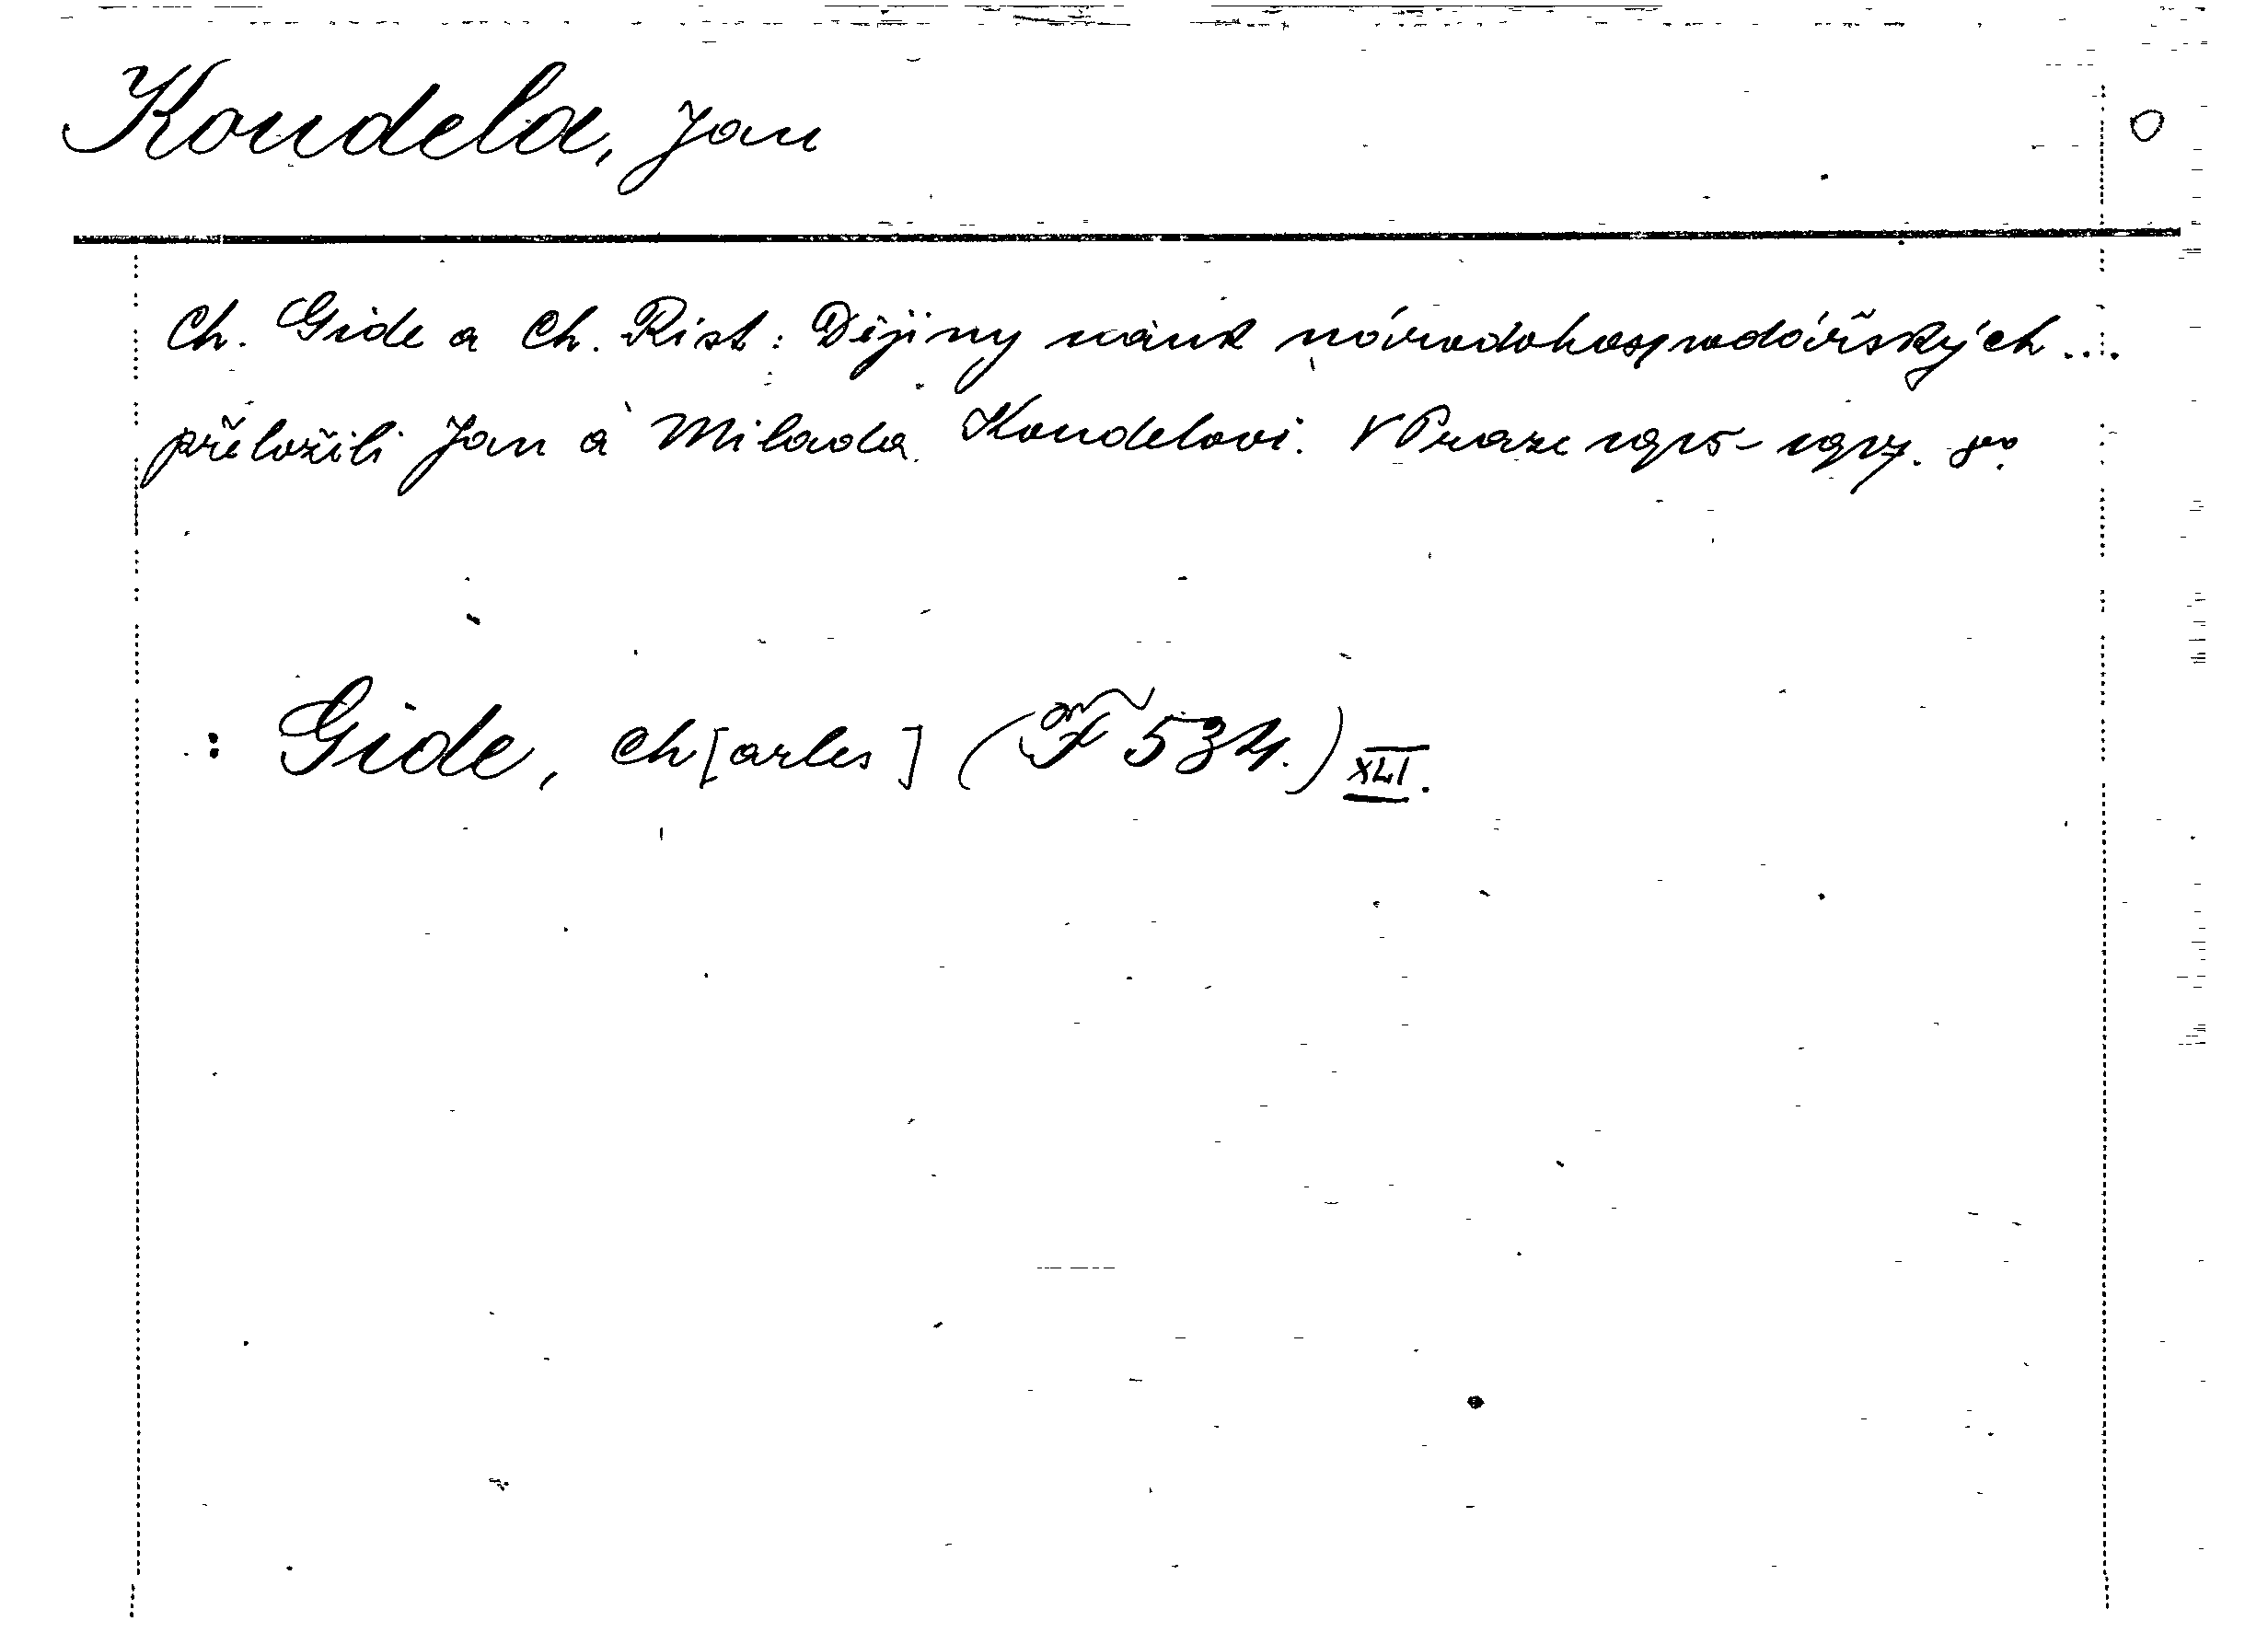 Koudela, Jan
Ch. Gide a Ch. Rist: Dějiny nauk národohospodářských...
přeložili Jan a Milada Koudelovi. V Praze 1915-1917. 8°.
: Gide, Ch[arles] (F 534.) XLI.